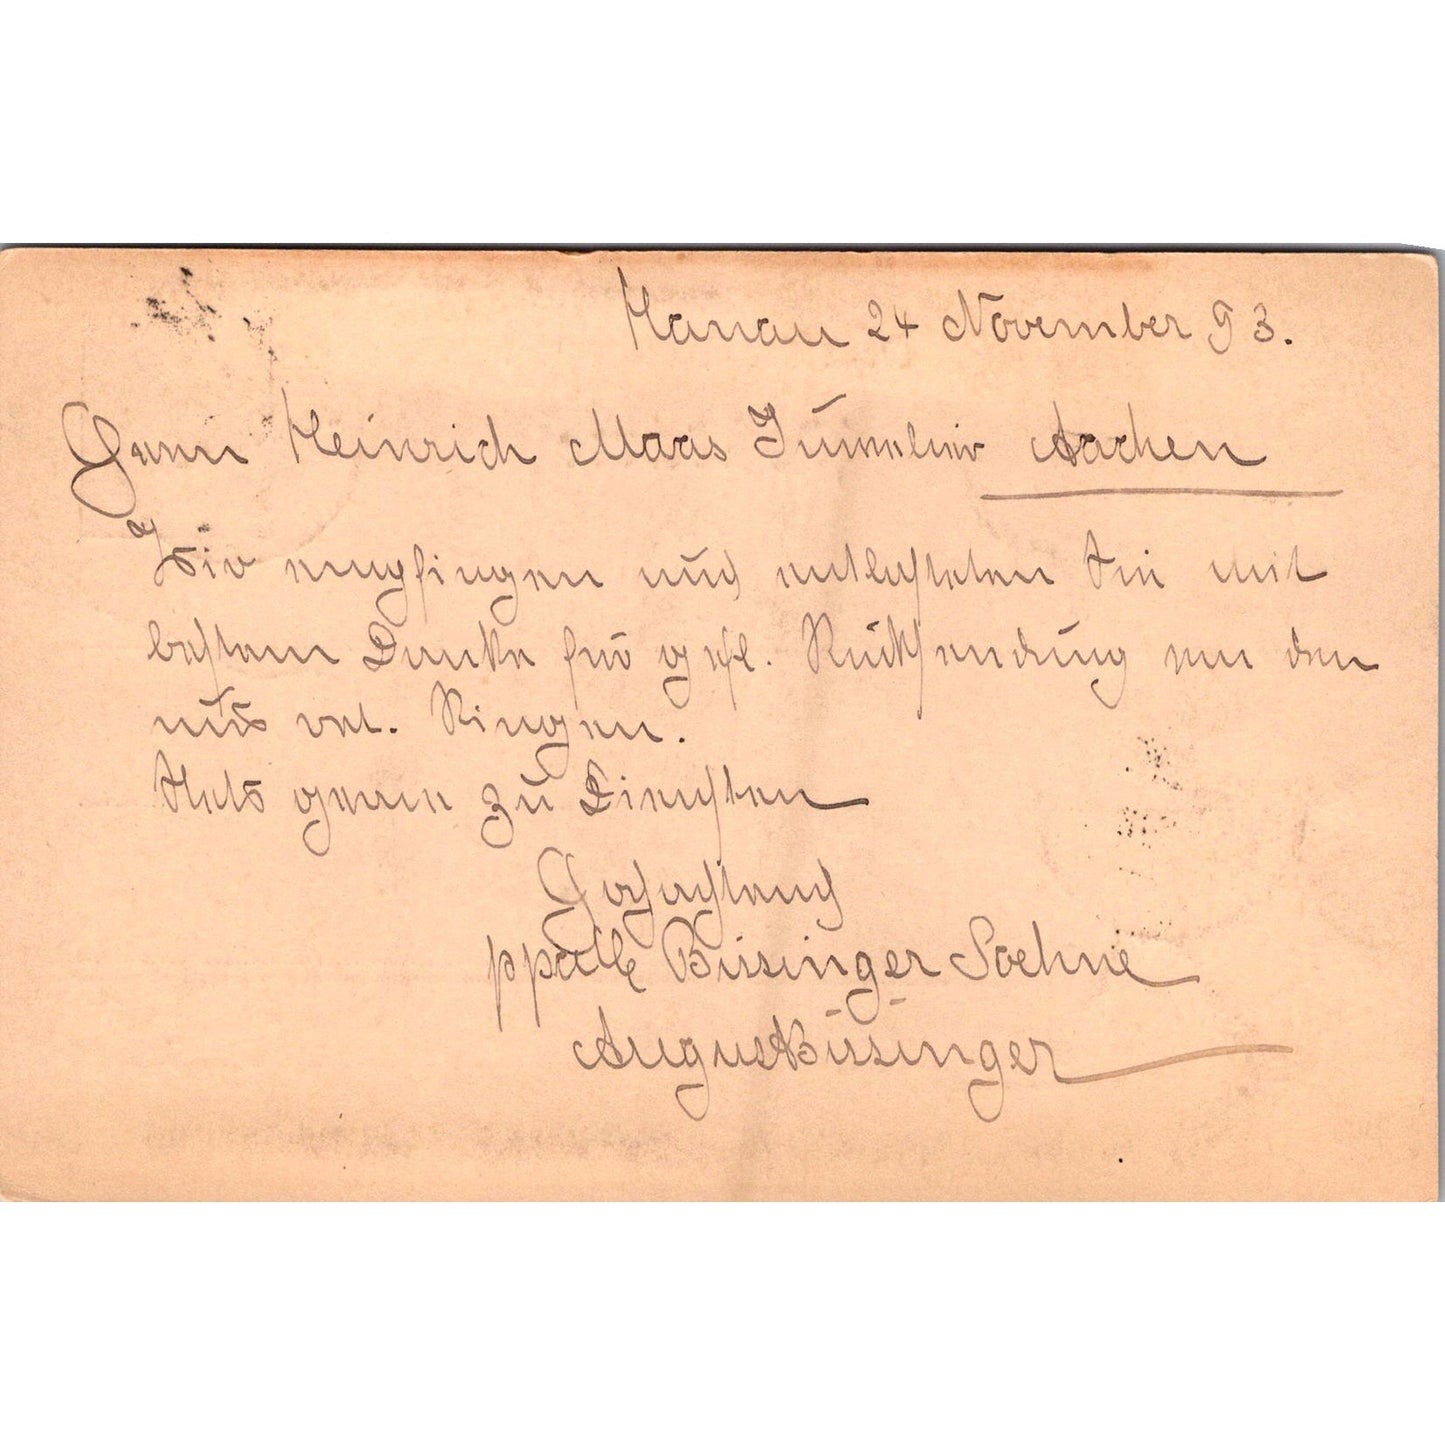 Hanau 24 November 93.
Herrn Heinrich Maas Juwelier Aachen
Wir empfingen und entlasteten Sie mit
bestem Danke für gefl. Rücksendung von den
uns Ringen.
Stets gerne zu Diensten
Hochachtend
ppa Bissinger Soehne
August Bissinger